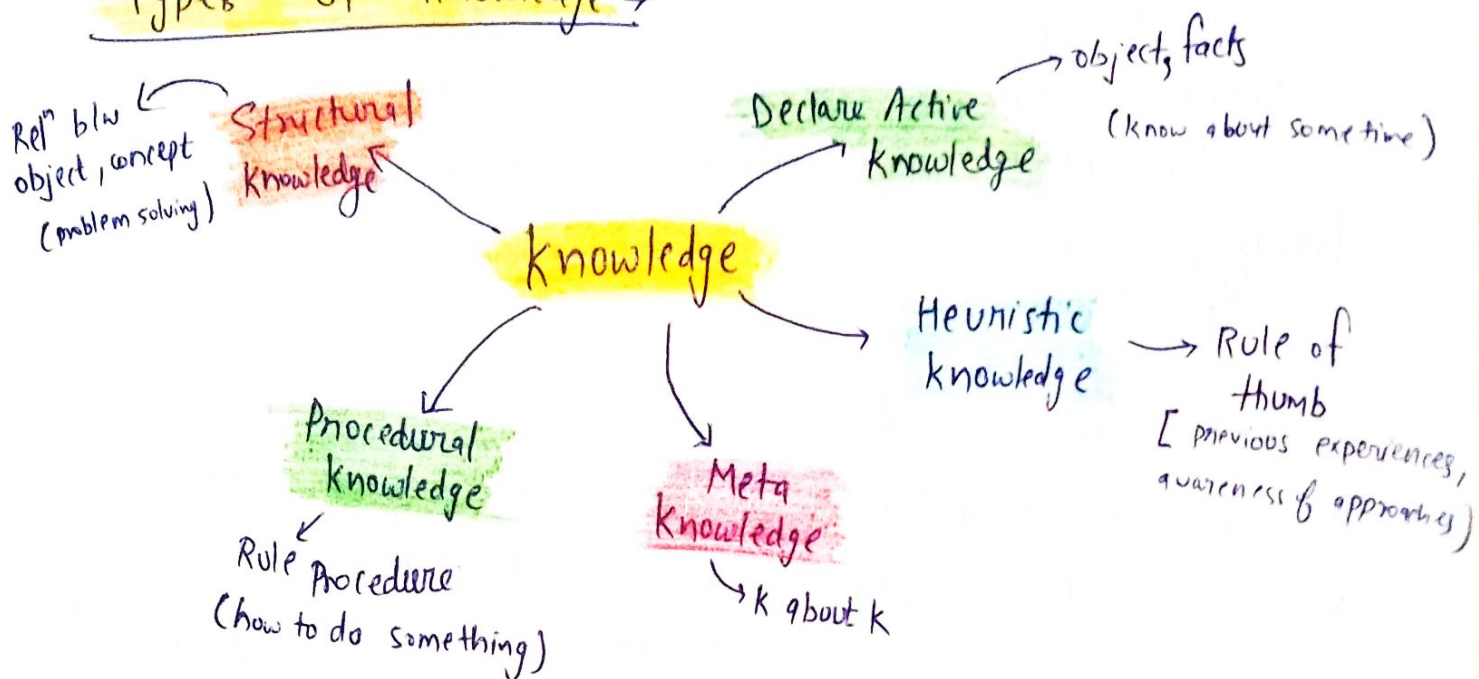 Types of Knowledge
Rel^n b/w
object, concept
(problem solving)
Structural
Knowledge
Declare Active
Knowledge
object, facts
(know about some time)
Knowledge
Heuristic
Knowledge
Rule of
thumb
[previous experiences,
awareness of approaches)
Procedural
Knowledge
Rule Procedure
(how to do something)
Meta
Knowledge
K about K